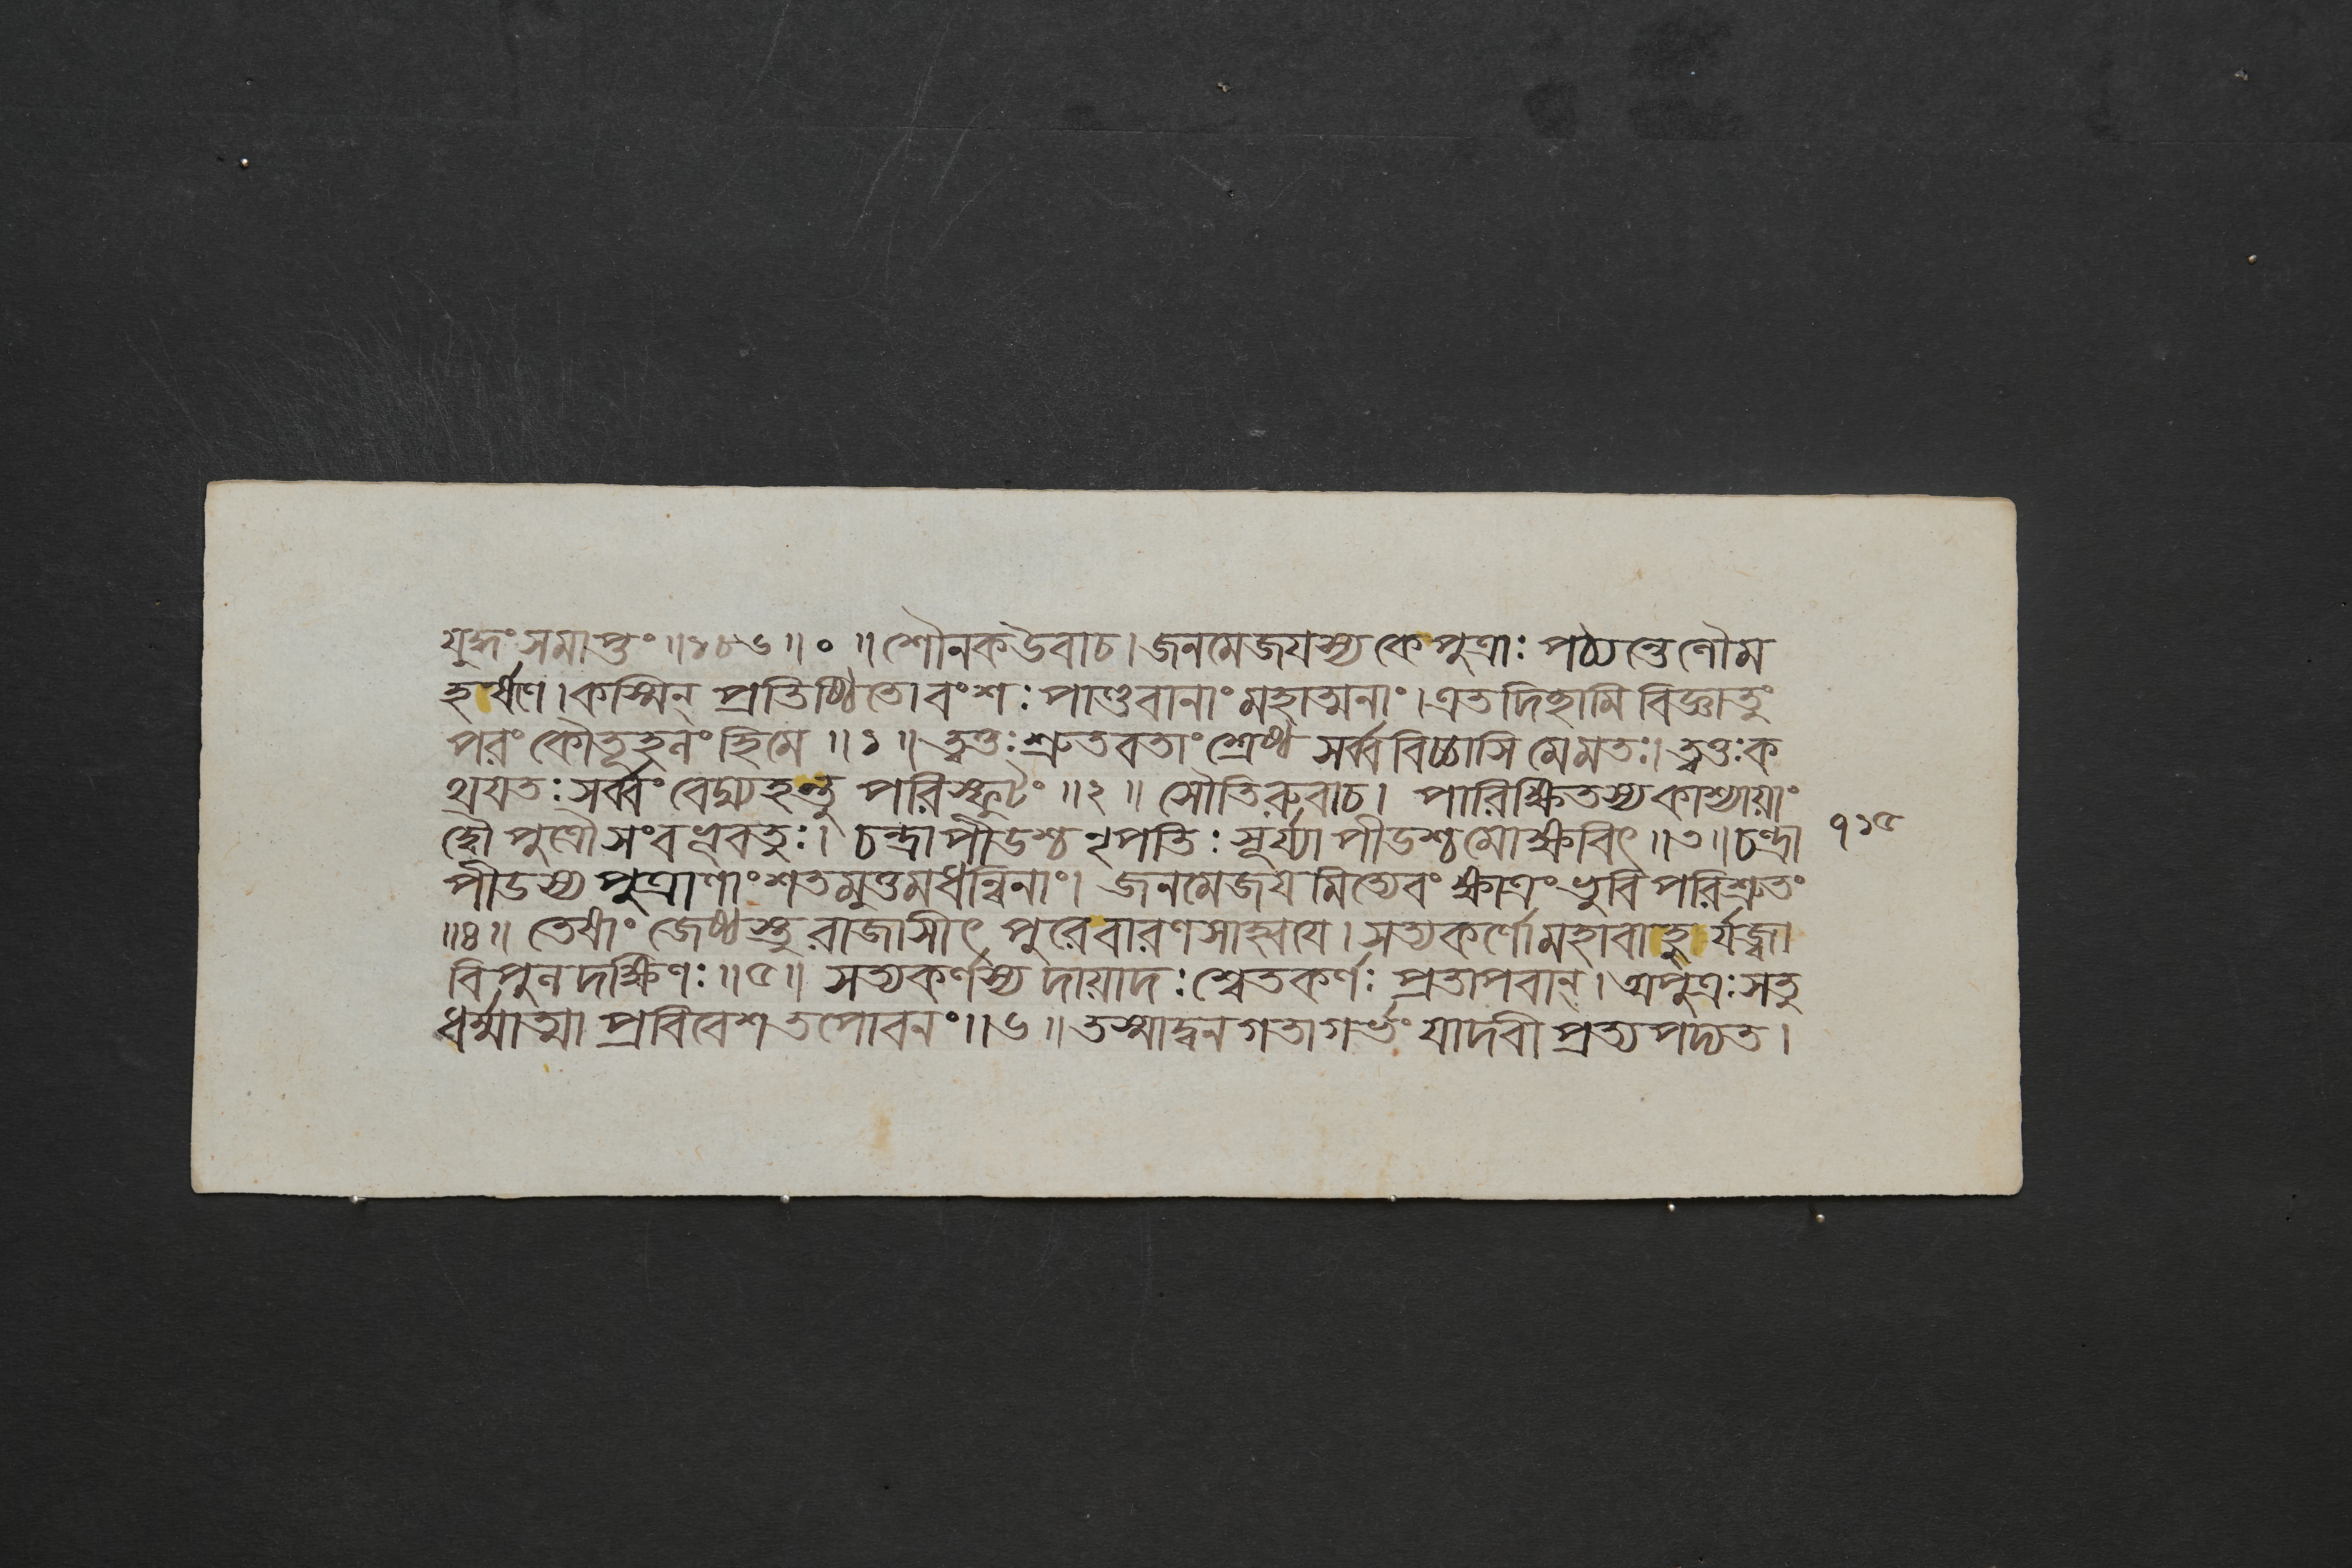 যুদ্ধং সমাপ্তং ॥ ১৮৬ ॥ ० ॥ শৌনক উবাচ । জনমেজযস্য কে পুত্রাঃ পঠ্যন্তে লৌম
হর্ষণে । কস্মিন্ প্রতিষ্ঠিতো বংশঃ পাণ্ডবানাং মহাত্মনাং । এতদিছামি বিজ্ঞাতুং
পরং কৌতূহলং হি মে ॥ ১ ॥ ত্বত্তঃ শ্রুতবতাং শ্রেষ্ঠ সর্ব্ববিচ্চাসি মে মতঃ । ত্বত্তঃ ক
থযতঃ সর্ব্বং বেদ্ম্যহন্তু পরিস্ফুটং ॥ ২ ॥ সৌতিরুবাচ । পারিক্ষিতস্য কাশ্যাযাং
দ্বৌ পুত্রৌ সংবভূবতুঃ । চন্দ্রাপীডশ্চ নৃপতিঃ সূর্য্যাপীডশ্চ মোক্ষবিৎ ॥ ৩ ॥ চন্দ্রা
পীডস্য পুত্রাণাং শতমুত্তমধন্বিনাং । জনমেজয মিত্যেবং ক্ষাত্রং ভুবি পরিশ্রুতং
॥ ৪ ॥ তেষাং জেষ্ঠস্তু রাজাসীৎ পুরে বারণসাহ্বযে । সত্যকর্ণো মহাবাহুর্যজ্বা
বিপুলদক্ষিণঃ ॥ ৫ ॥ সত্যকর্ণস্য দাযাদঃ শ্বেতকর্ণঃ প্রতাপবান্ । অপুত্রঃ স তু
ধর্ম্মাত্মা প্রবিবেশ তপোবনং ॥ ৬ ॥ তস্মাদ্বনগতা গর্ভং যাদবী প্রত্যপদ্যত ।
৭১৫